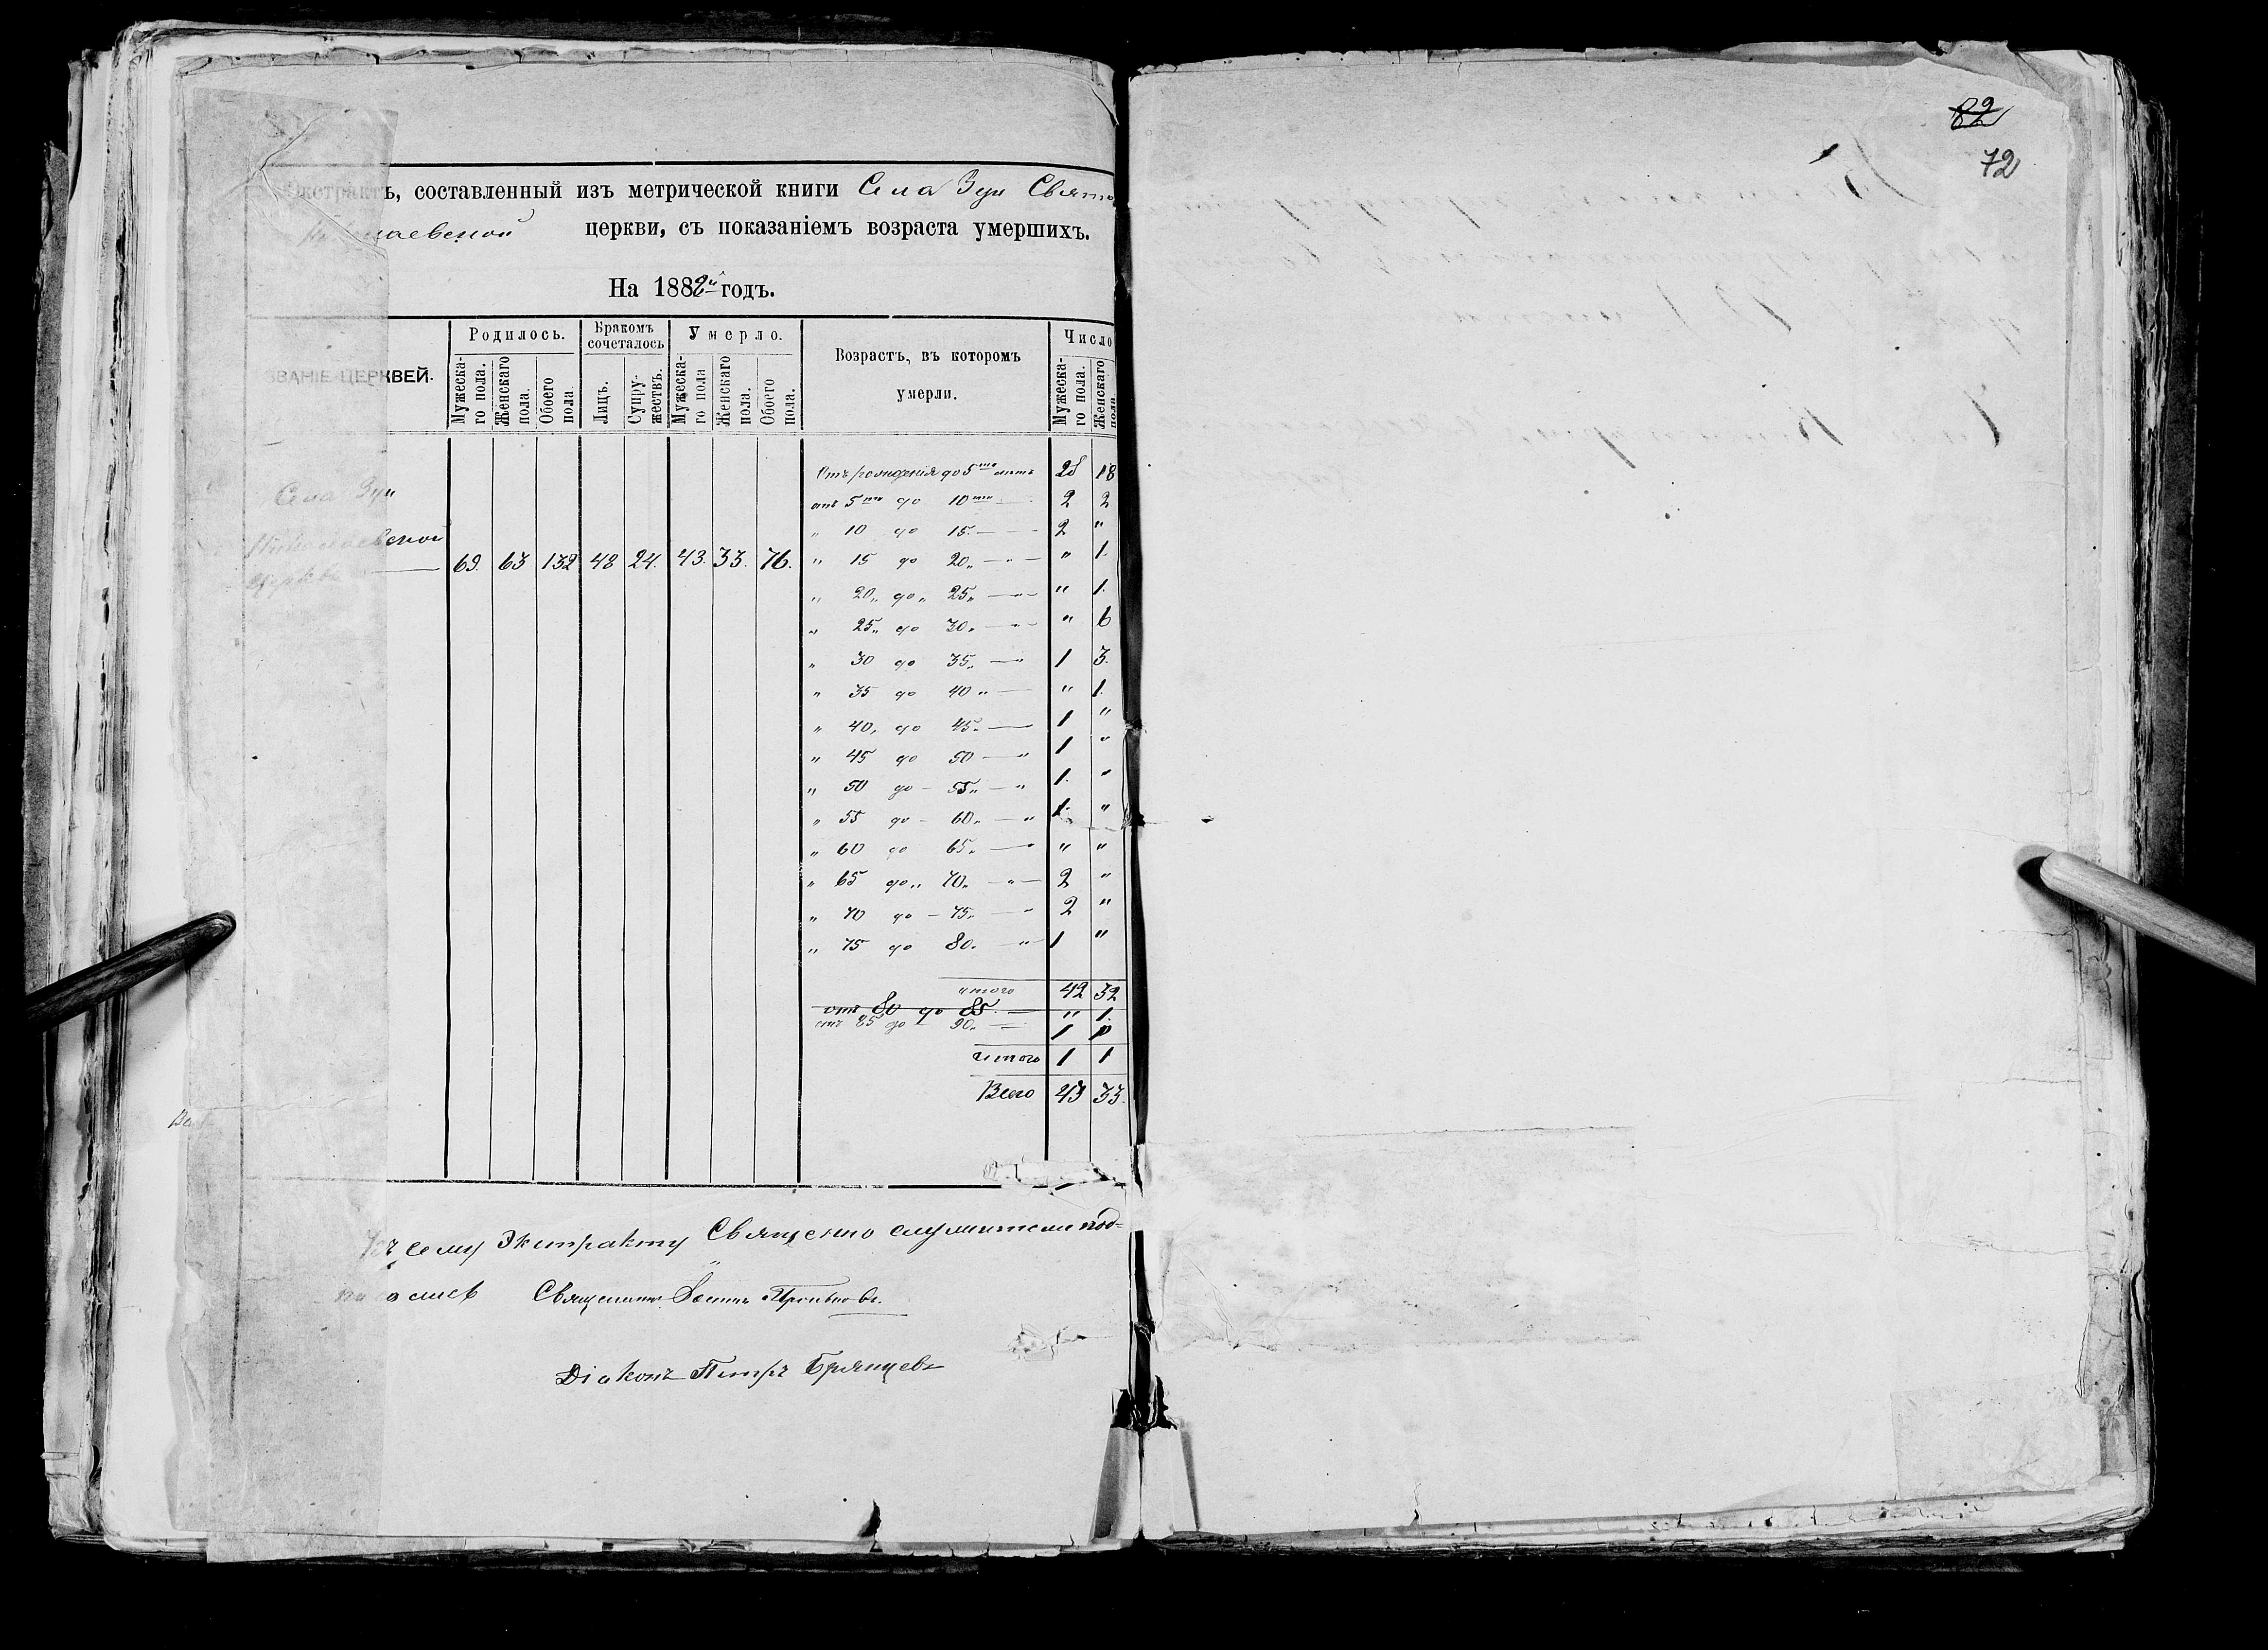 82
72
Экстрактъ, составленный изъ метрической книги Села Зуи Свято
Николаевской церкви, съ показаніемъ возраста умершихъ.
На 1882й годъ.
ЗВАНІЕ ЦЕРКВЕЙ.
Родилось.
Бракомъ сочеталось
Умерло.
Возрастъ, въ котором умерли.
Число
Мужеска-го пола.
Женскаго пола.
Обоего пола
Лицъ.
Супру-жествъ.
Мужеска-го пола
Женскаго пола.
Обоего пола.
Мужеска-го пола.
Женскаго пола
Села Зуи
Николаевской
церкви
69. 63 132 48 24. 43. 33. 76.
Отъ рожденія до 5ти летъ 28 18
отъ 5ти до 10ти 2 2
„ 10 до 15. 2 "
„ 15 до 20„ " 1.
„ 20„ до„ 25„ " 1.
„ 25„ до 30„ " 6
„ 30 до 35„ 1 3.
„ 35 до 40„ " 1.
„ 40, до 45„ 1 "
„ 45 до 50 1 "
„ 50 до 55„ 1. "
„ 55 до 60„ 1. "
„ 60 до 65„ " "
„ 65 до„ 70„ 2 "
„ 70 до 75„ 2 "
„ 75 до 80. 1 "
итого 42 32
отъ 80 до 85. " 1.
отъ 85 до 90. 1
итого 1 1
Всего 43 33.
Къ сему Экстракту Священно служители под=
писались Священникъ
Діаконъ Петръ Брянцевъ